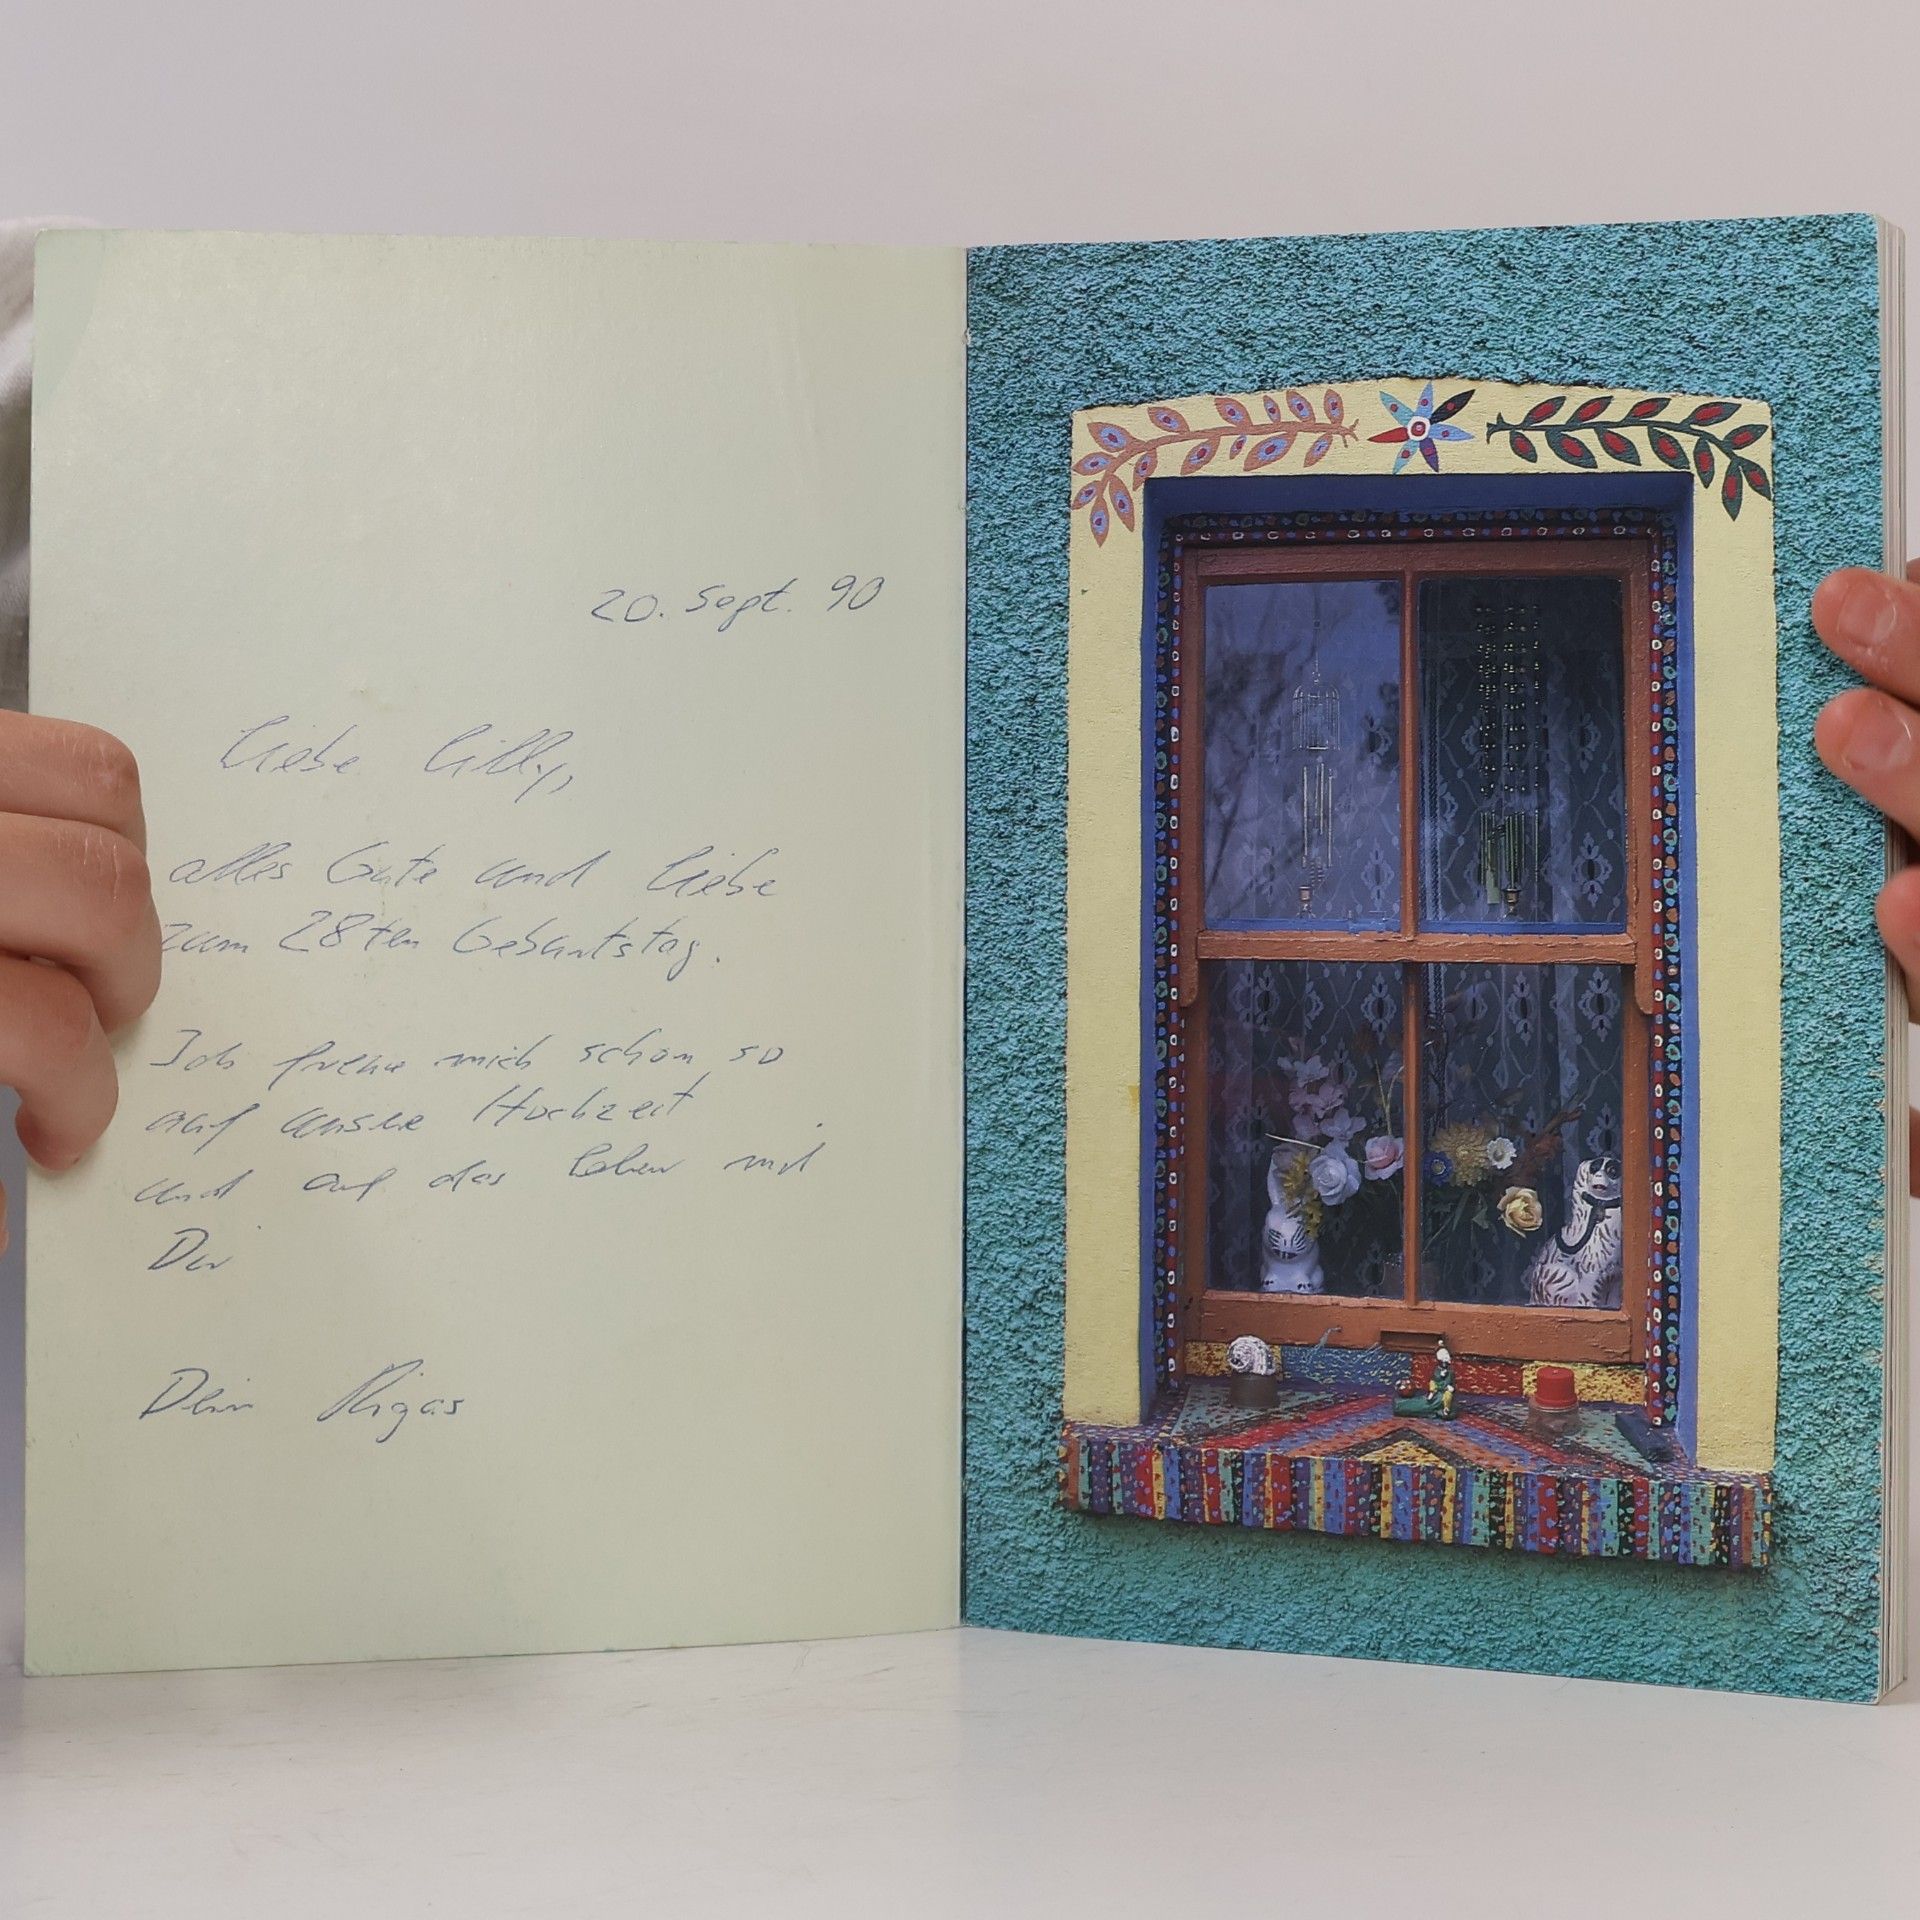 20. Sept. 90
Liebe Lilly,
alles Gute und Liebe
zum 28ten Geburtstag.
Ich freue mich schon so
auf unsere Hochzeit
und auf das Leben mit
Dir
Dein Rigas